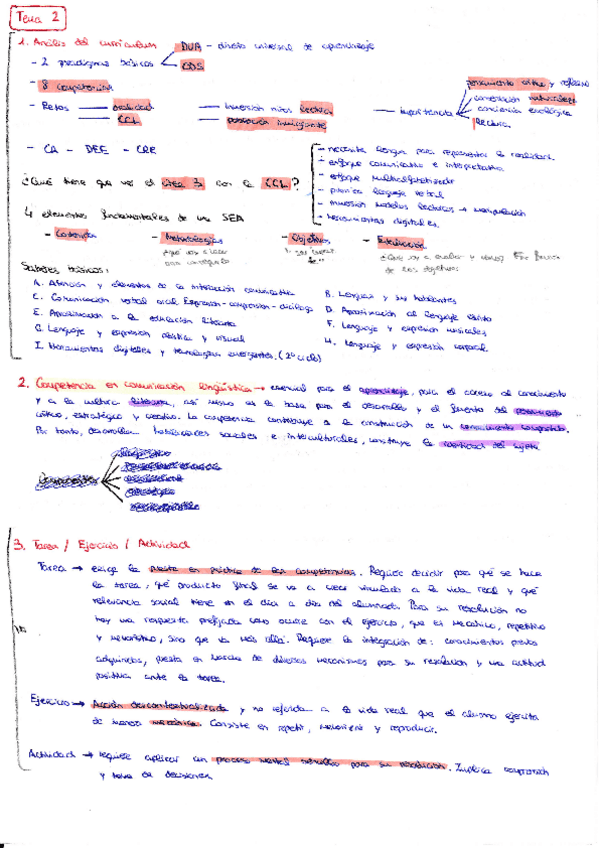 Tema 2
1. Análisis del curriculum
DUA - diseño universal de aprendizaje
- 2 paradigmas básicos
ODS
- 8 competencias
- Retos
oralidad
CCL
inmersión mitos lectura
importancia
pensamiento crítico y reflexivo
conciencia ecológica
lectura.
- CA - DEE - CRE
- necesita lengua para representar la realidad.
- enfoque comunicativo e interpretativo
- enfoque multialfabetizador
- lenguaje verbal
- inmersión modelos lectores → manipulación
- herramientas digitales.
¿Qué tiene que ver el área 3 con la CCL?
4 elementos fundamentales de una SEA
- Contenidos
- Metodologías
- Objetivos
- Evaluación
¿Qué voy a hacer
¿Qué voy a evaluar y cómo?
de los objetivos
Saberes básicos:
A. Atención y elementos de la interacción comunicativa
B. Lenguas y sus hablantes
C. Comunicación verbal oral. Expresión-comprensión-diálogo
D. Aproximación al lenguaje escrito
E. Aproximación a la educación literaria
F. Lenguaje y expresión musicales
G. Lenguaje y expresión plástica y visual
H. Lenguaje y expresión corporal.
I. Herramientas digitales y tecnologías emergentes. (2º ciclo)
2. Competencia en comunicación lingüística → esencial para el aprendizaje, para el acceso al conocimiento
y a la cultura literaria, así mismo es la base para el desarrollo y el fomento del pensamiento
crítico, estratégico y creativo. La competencia contribuye a la construcción de un conocimiento compartido.
Por tanto, desarrolla habilidades sociales e interculturales, construye la identidad del sujeto
3. Tarea / Ejercicio / Actividad
Tarea → exige la puesta en práctica de las competencias. Requiere decidir para qué se hace
la tarea, qué producto final se va a crear vinculado a la vida real y qué
relevancia social tiene en el día a día del alumnado. Para su resolución no
hay una respuesta prefijada como ocurre con el ejercicio, que es mecánico, repetitivo
y memorístico, sino que va más allá. Requiere la integración de: conocimientos previos
adquiridos, puesta en marcha de diversos mecanismos para su resolución y una actitud
positiva ante la tarea.
Ejercicio → Acción descontextualizada y no referida a la vida real que el alumno ejercita
de manera mecánica. Consiste en repetir, memorizar y reproducir.
Actividad → requiere aplicar un proceso mental sencillo para su resolución. Implica comprensión
y toma de decisiones